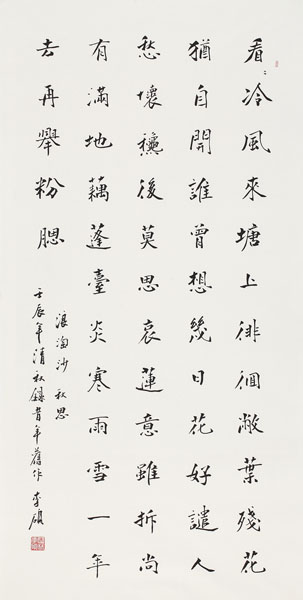 看冷風來塘上徘徊敝葉殘花
猶自開誰曾想幾日花好譴人
愁壞後莫思哀蓮意雖拆尚
有滿地藕蓬臺炎寒雨雪一年
去再舉粉腮
浪淘沙 秋思
壬辰年清秋錄昔年舊作 李